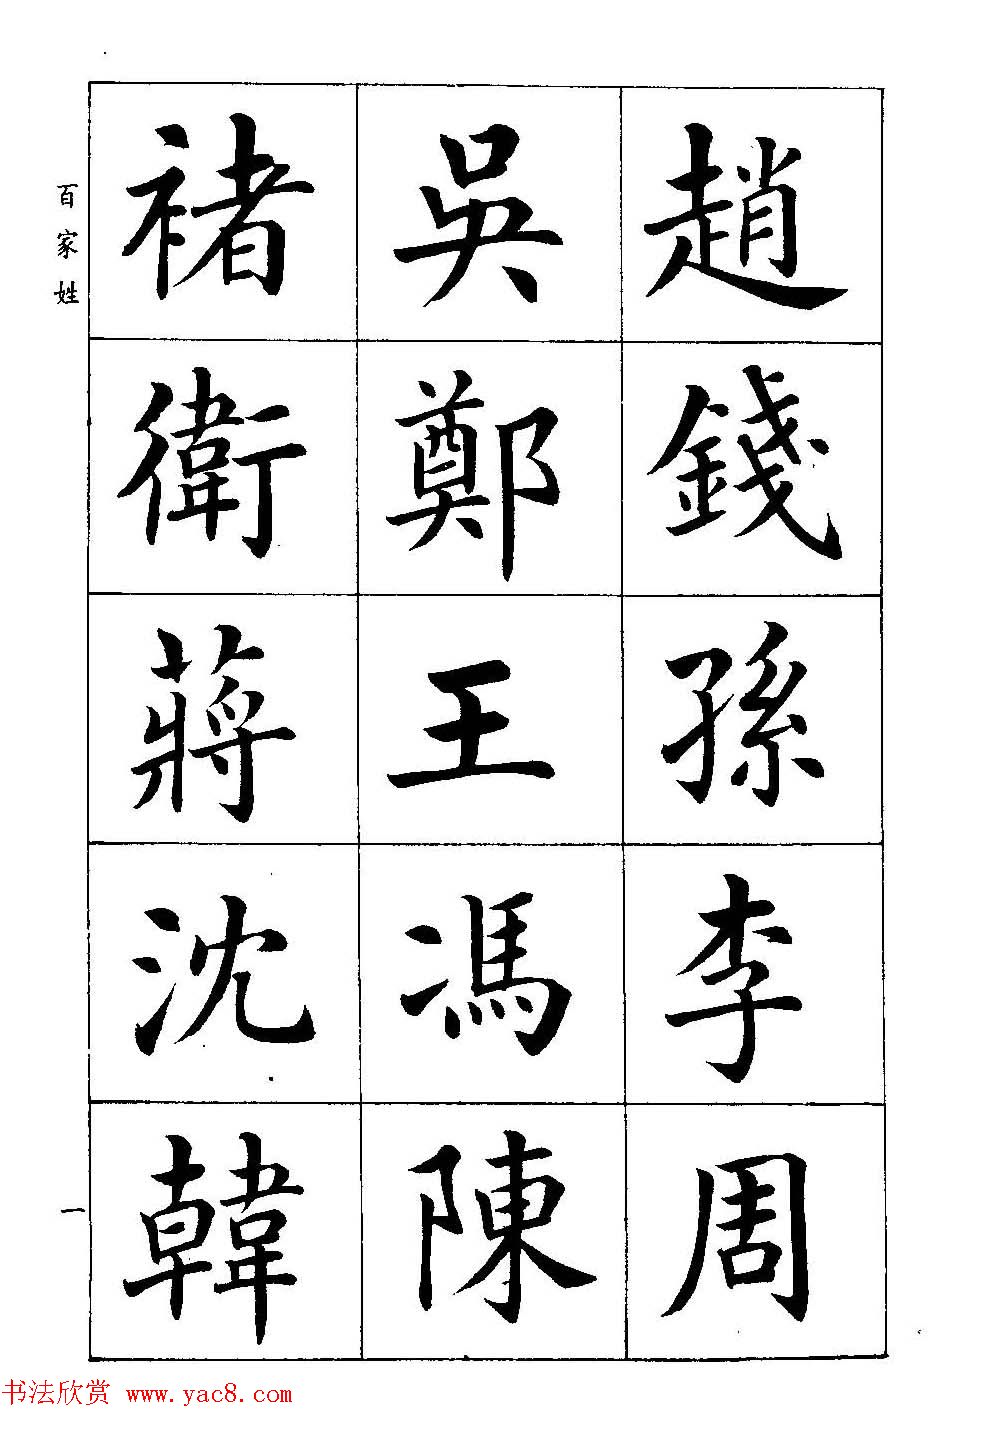 趙錢孫李周
吳鄭王馮陳
褚衛蔣沈韓
百家姓
一
书法欣赏 www.yac8.com